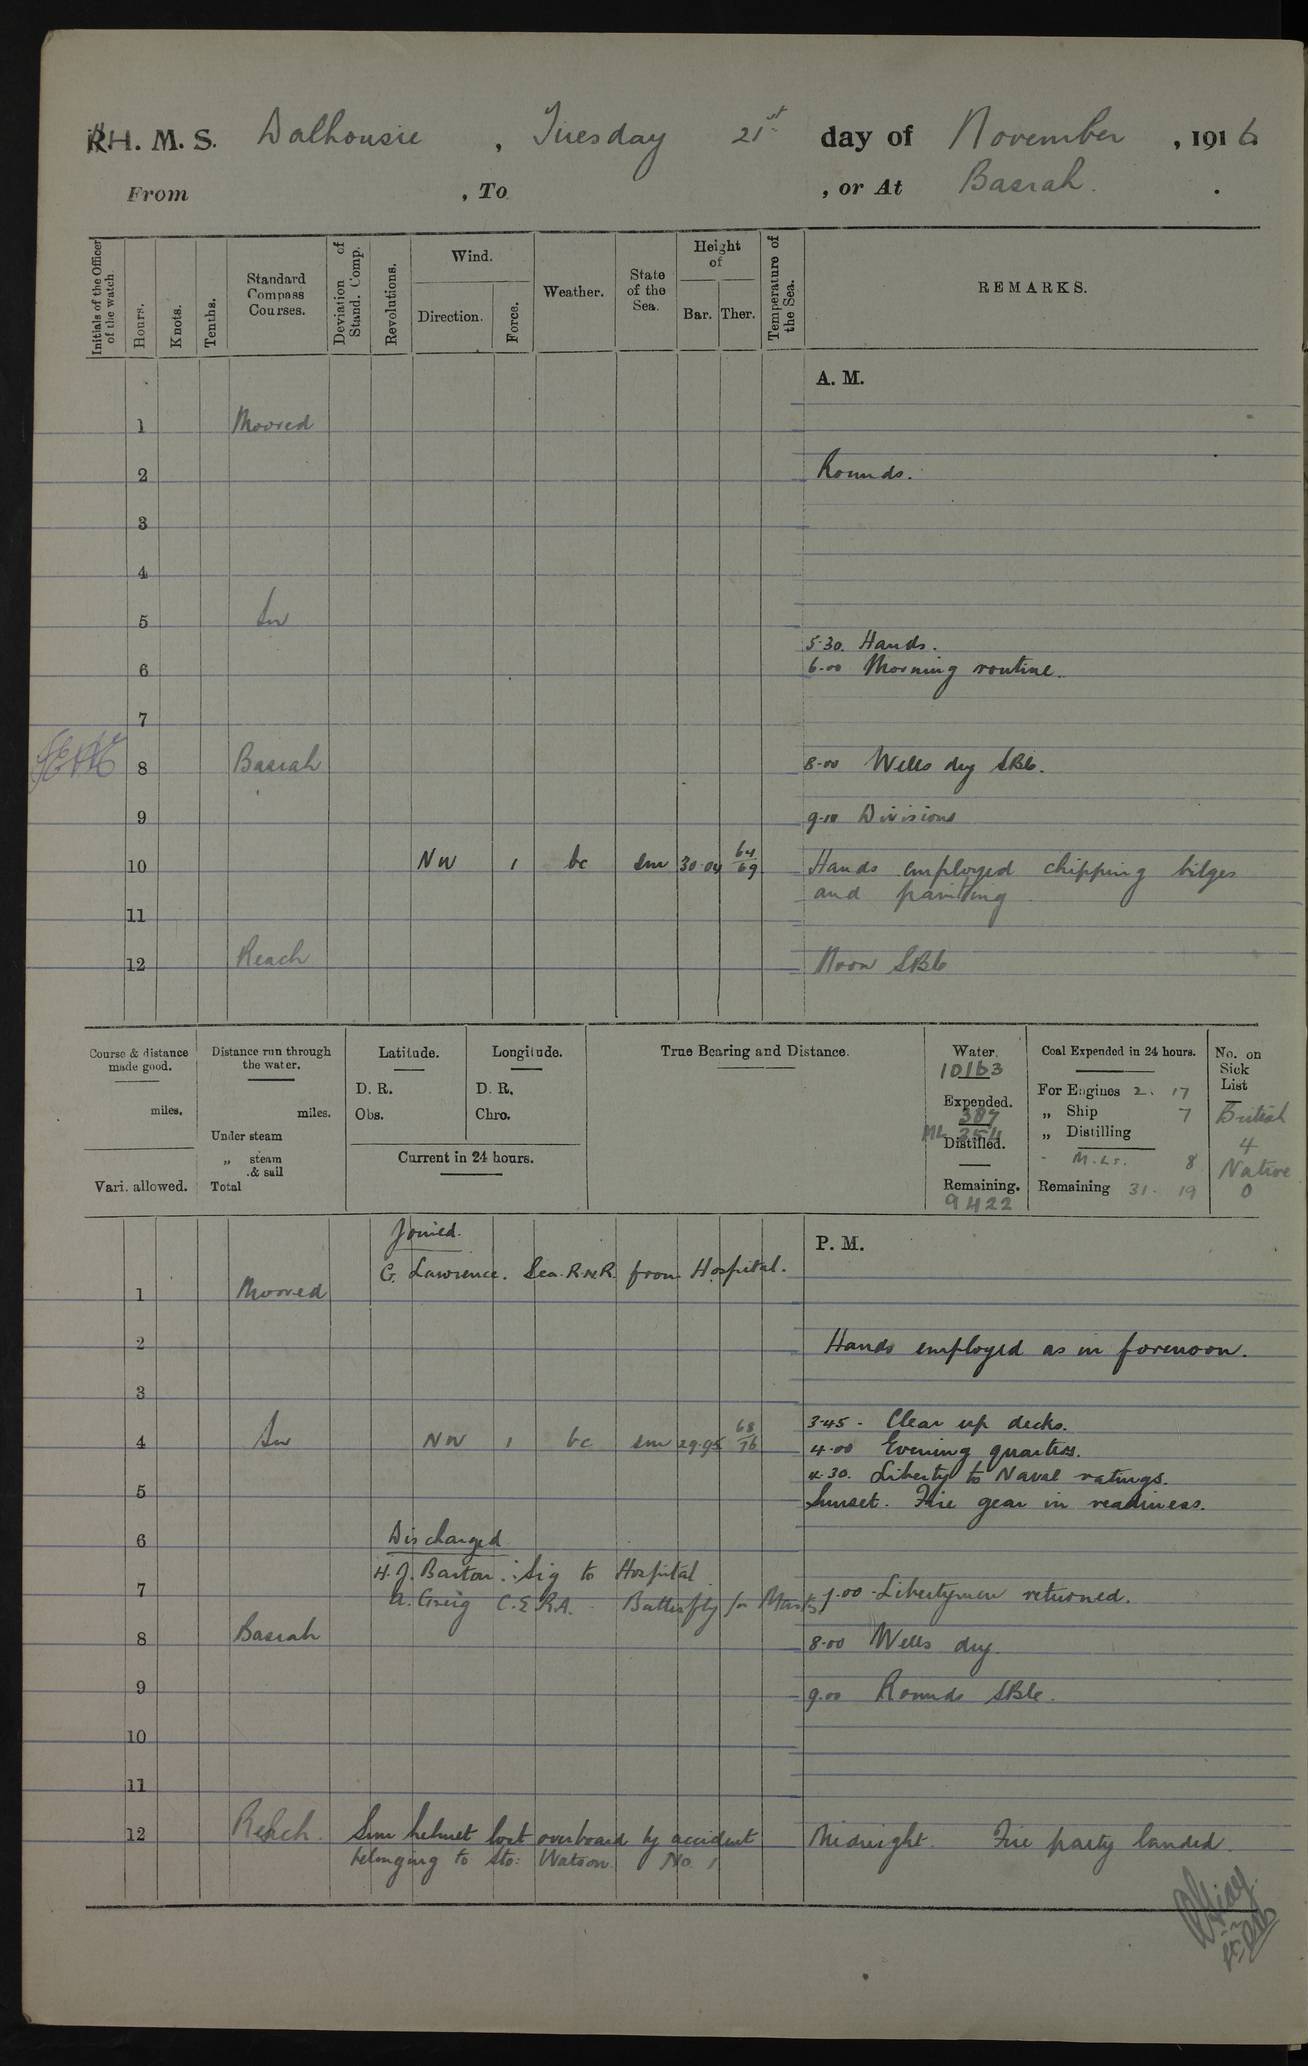 R.H. M. S. Dalhousie , Tuesday 21st day of November , 1916
From , To , or At Basrah.
Initials of the Officer of the watch
Hours.
Knots.
Tenths.
Standard Compass Courses.
Deviation of Stand. Comp.
Revolutions.
Wind.
Direction.
Force.
Weather.
State of the Sea.
Height of
Bar. Ther.
Temperature of the Sea.
REMARKS.
A. M.
1 Moored
2 Rounds.
3
4
5 In
5.30. Hands.
6 6.00 Morning routine.
7
8 Basrah 8.00 Wells dry SBle.
9 9.10 Divisions
10 NW 1 bc sm 30.04 64/69 Hands employed chipping bilges
and painting
11
12 Reach Noon SBle
Course & distance made good.
miles.
Vari. allowed.
Distance run through the water.
miles.
Under steam
„ steam & sail
Total
Latitude.
D. R.
Obs.
Longitude.
D. R.
Chro.
Current in 24 hours.
True Bearing and Distance.
Water.
10163
Expended.
387
ML 354
Distilled.
Remaining.
9422
Coal Expended in 24 hours.
For Engines 2. 17
„ Ship 7
„ Distilling
- M.Ls. 8
Remaining 31. 19
No. on Sick List
British
4
Native
0
P. M.
Joined.
G. Lawrence. Sea. R.N.R. from Hospital.
1 Moored
2 Hands employed as in forenoon.
3
3.45 - Clear up decks.
4 In NW 1 bc sm 29.95 68/76 4.00 Evening quarters.
4.30. Liberty to Naval ratings.
5 Sunset. Fire gear in readiness.
6 Discharged
H. J. Barton. Sig to Hospital
7 A. Greig C.E.R.A. Butterfly for Mantis 7.00 - Libertymen returned.
8 Basrah 8.00 Wells dry.
9 9.00 Rounds SBle.
10
11
12 Reach. Sun helmet lost overboard by accident Midnight. Fire party landed.
belonging to Sto: Watson. No. 1